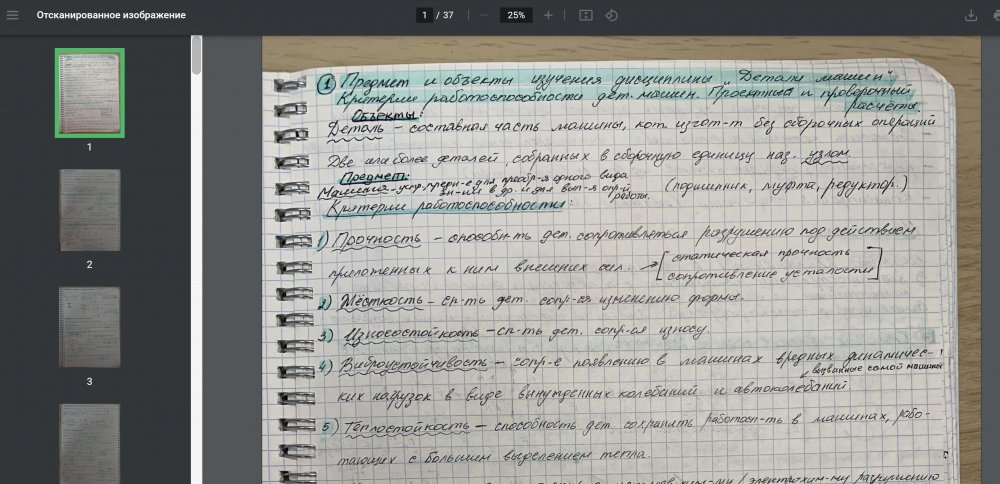 Отсканированное изображение
1 / 37
25%
1
2
3
① Предмет и объекты изучения дисциплины "Детали машин".
Критерии работоспособности дет. машин. Проектный и проверочный
расчёты.
Объекты:
Деталь – составная часть машины, кот. изгот-т без сборочных операций
Две или более деталей, собранных в сборочную единицу наз. узлом.
Предмет:
(подшипник, муфта, редуктор.)
Машина - устр, предн-е для преобр-я одного вида
эн-ии в др. и для вып-я опр-й
работы.
Критерии работоспособности:
1) Прочность – способн-ть дет. сопротивляться разрушению под действием
приложенных к ним внешних сил. → [статическая прочность
сопротивление усталости]
2) Жёсткость – сп-ть дет. сопр-ся изменению формы.
3) Износостойкость – сп-ть дет. сопр-ся износу.
4) Виброустойчивость – сопр-е появлению в машинах вредных динамичес-
вызванные самой машиной
ких нагрузок в виде вынужденных колебаний и автоколебаний
5) Теплостойкость – способность дет. сохранить работосп-ть в машинах, рабо-
тающих с большим выделением тепла.
хим-му / электрохим-му разрушению